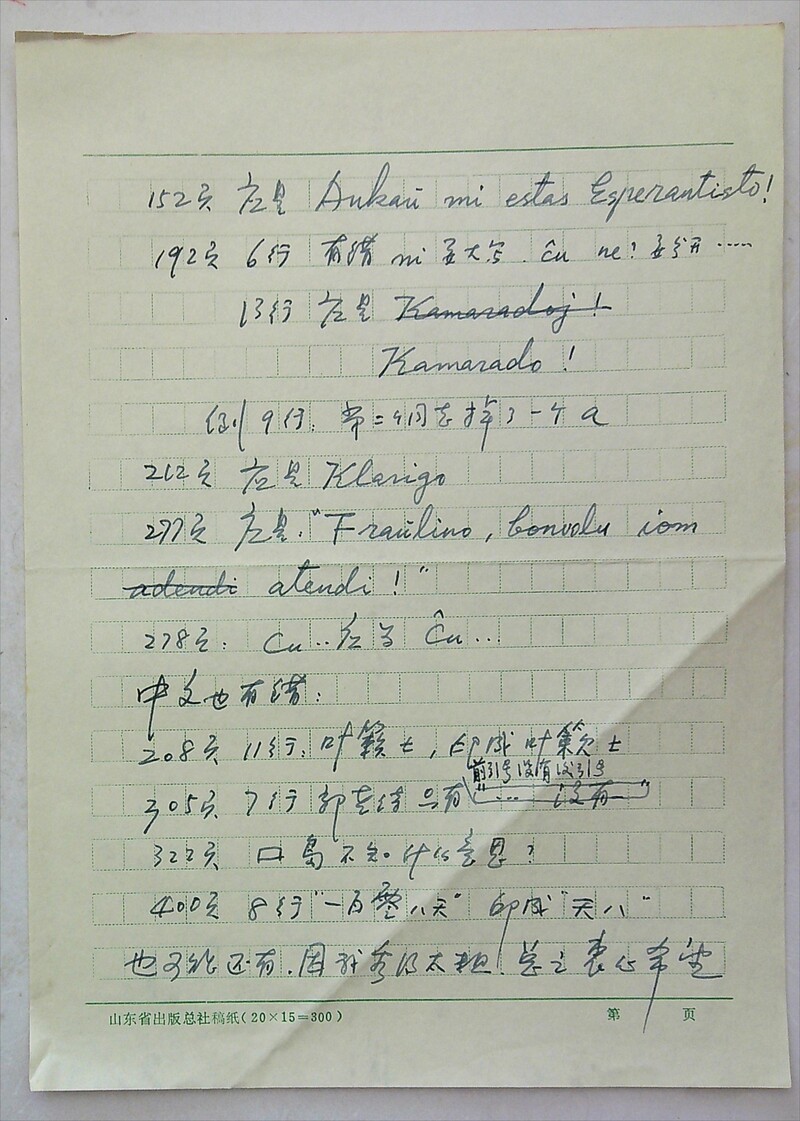 152页 应是 Ankaŭ mi estas Esperantisto!
192页 6行 有错 mi 要大写. ĉu ne? 要分开……
13行 应是 Kamaradoj!
Kamarado!
倒9行: 第二个同志掉了一个a
262页 应是 Klarigo
277页 应是. "Fraŭlino, bonvolu iom
adendi atendi!"
278页: Cu.. 应为 Ĉu...
中文也有错:
208页 11行: 叶籁士, 印成叶籁士
前引号没有后引号
305页 7行 郭老待只有 "… 没有—"
322页 口岛 不知什么意思?
400页 8行 "一百零八天" 印成 "天八"
也可能还有. 因我看得太粗. 总之衷心希望
山东省出版总社稿纸(20×15=300)
第 页